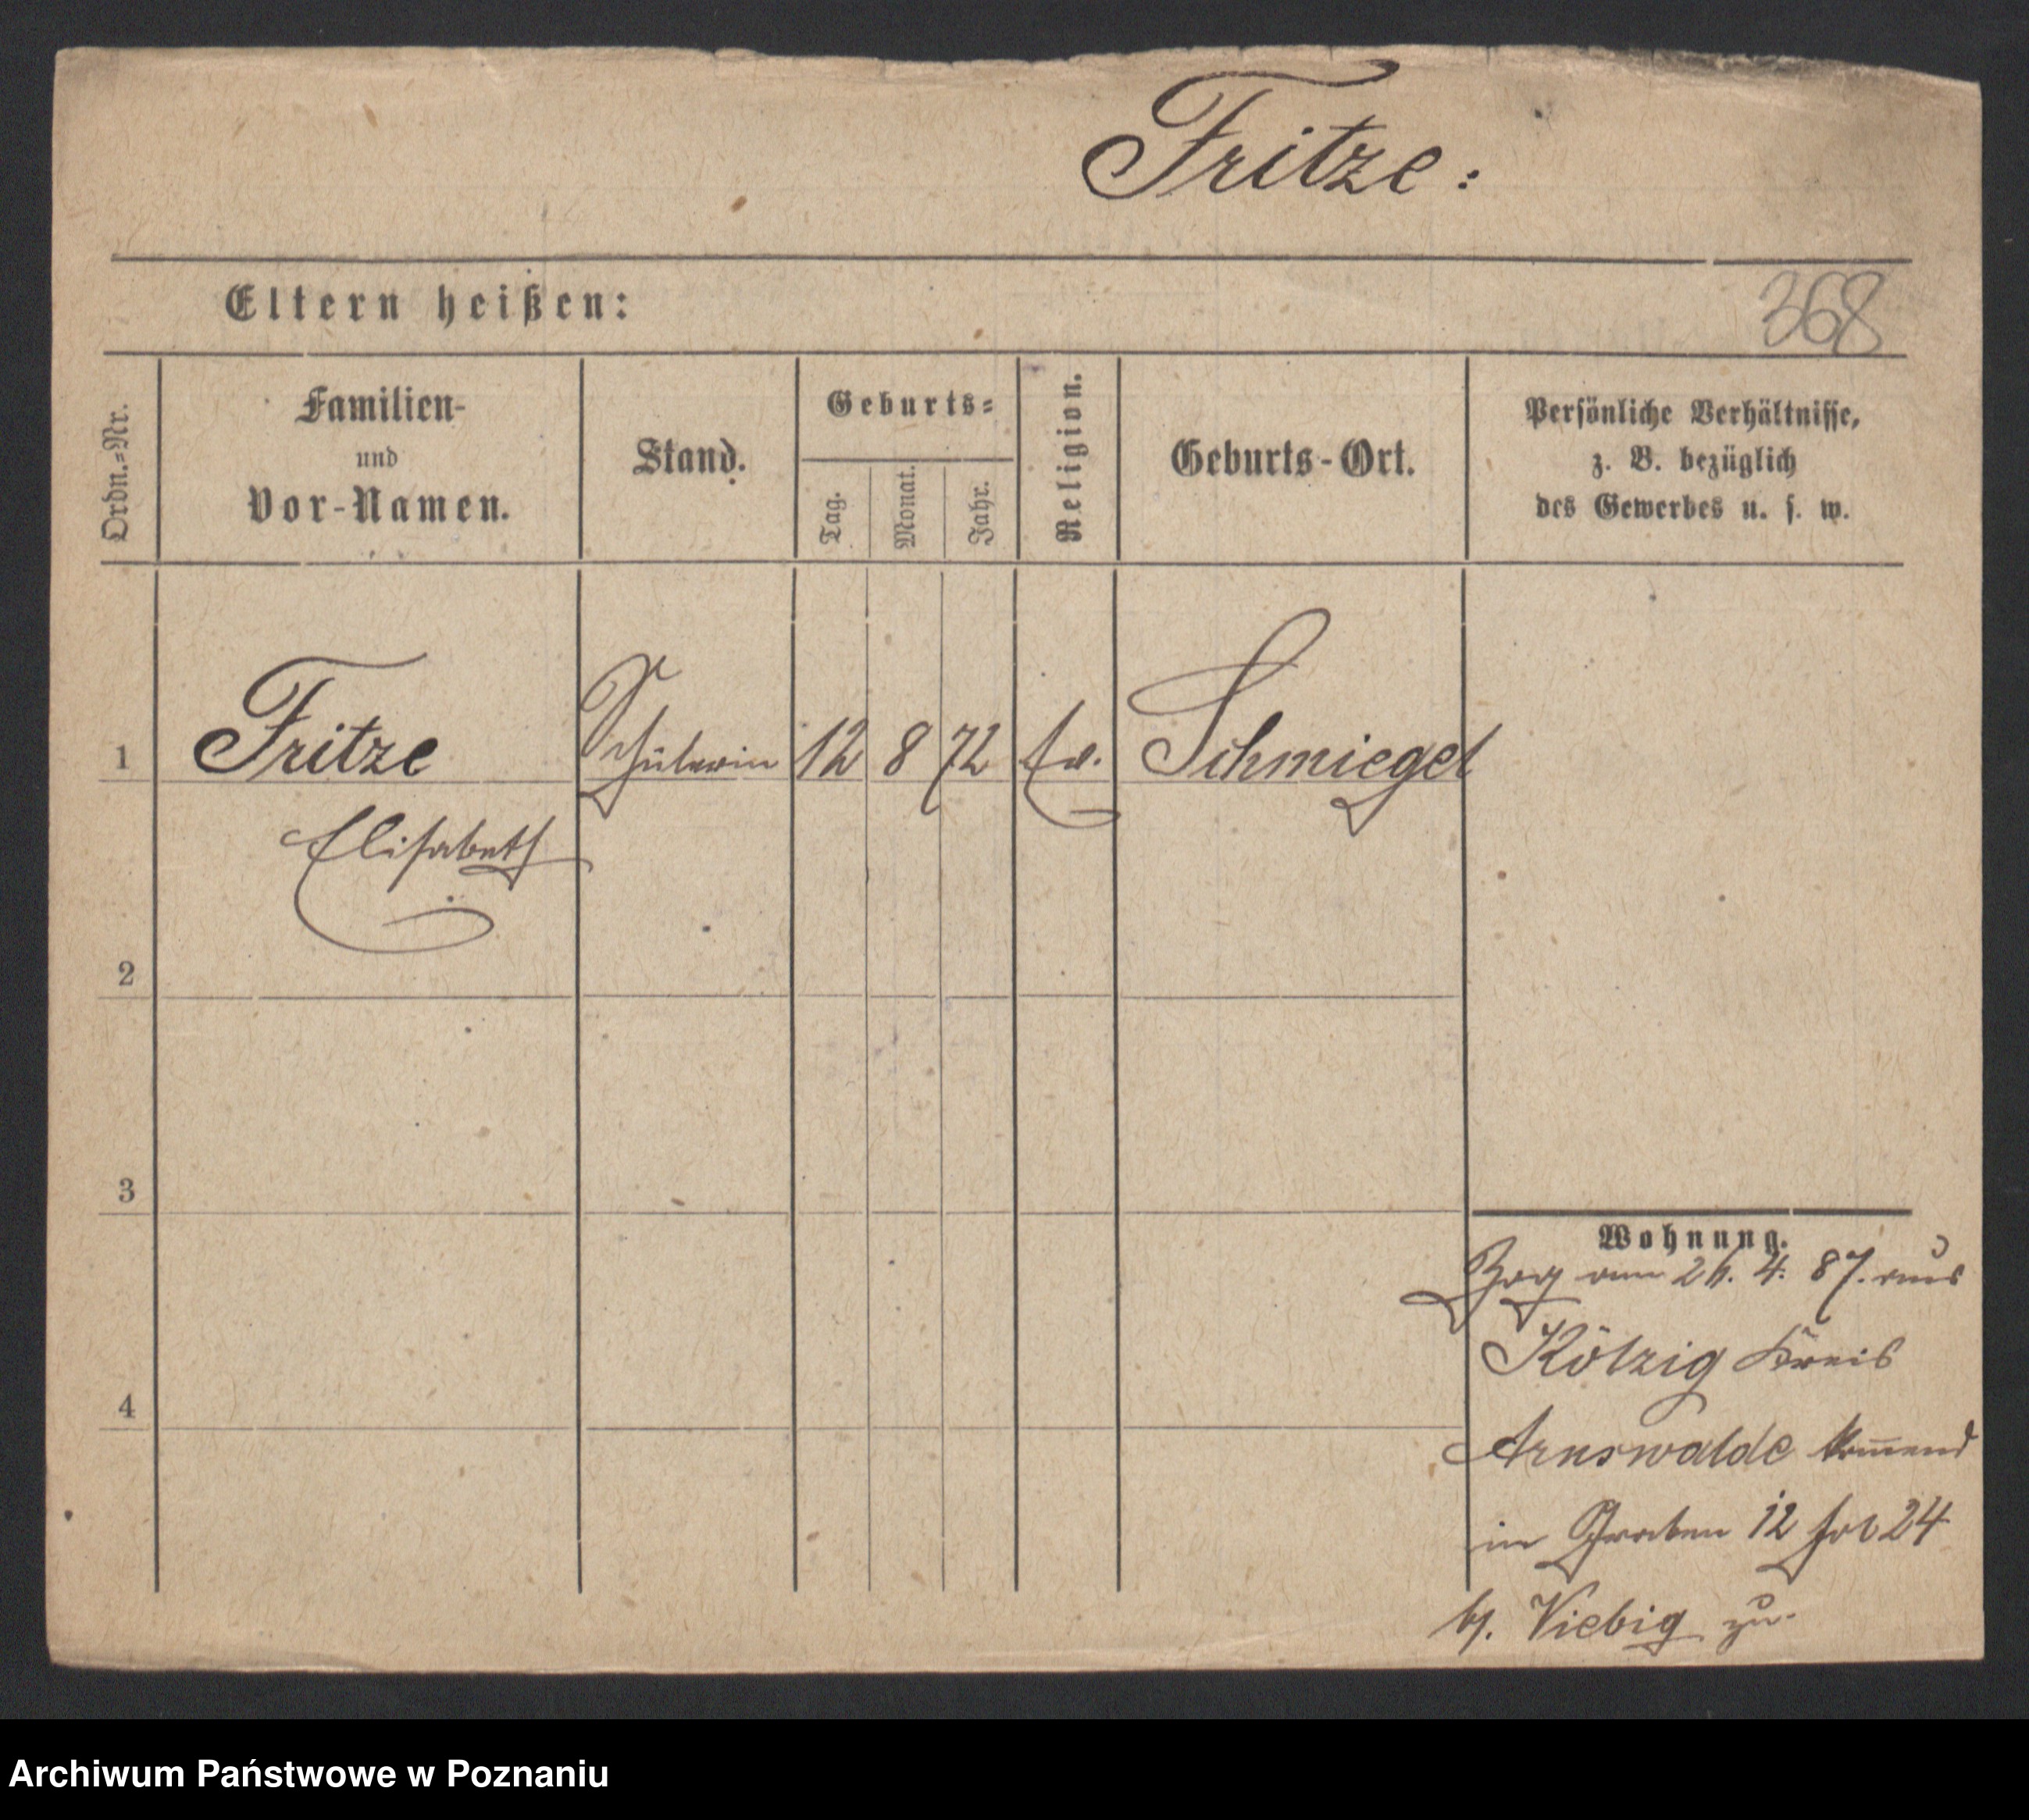 Fritze:
368
Eltern heißen:
Ordn.=Nr.
Familien-
und
Vor-Namen.
Stand.
Geburts=
Tag.
Monat.
Jahr.
Religion.
Geburts-Ort.
Persönliche Verhältnisse,
z. B. bezüglich
des Gewerbes u. s. w.
1 Fritze Schülerin 12 8 72 ev. Schmiegel
Elisabeth
2
3
4
Wohnung.
Zog am 4. 87. aus
Kölzig Kreis
Arnswalde kom̅end
in Graben 12 24
b/. Viebig zu.
Archiwum Państwowe w Poznaniu